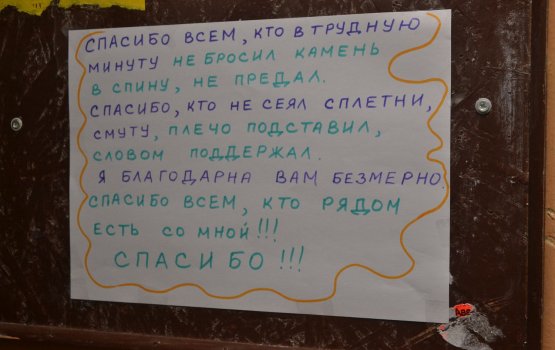 СПАСИБО ВСЕМ, КТО В ТРУДНУЮ
МИНУТУ НЕ БРОСИЛ КАМЕНЬ
В СПИНУ, НЕ ПРЕДАЛ.
СПАСИБО, КТО НЕ СЕЯЛ СПЛЕТНИ,
СМУТУ, ПЛЕЧО ПОДСТАВИЛ,
СЛОВОМ ПОДДЕРЖАЛ.
Я БЛАГОДАРНА ВАМ БЕЗМЕРНО
СПАСИБО ВСЕМ, КТО РЯДОМ
ЕСТЬ СО МНОЙ!!!
СПАСИБО!!!